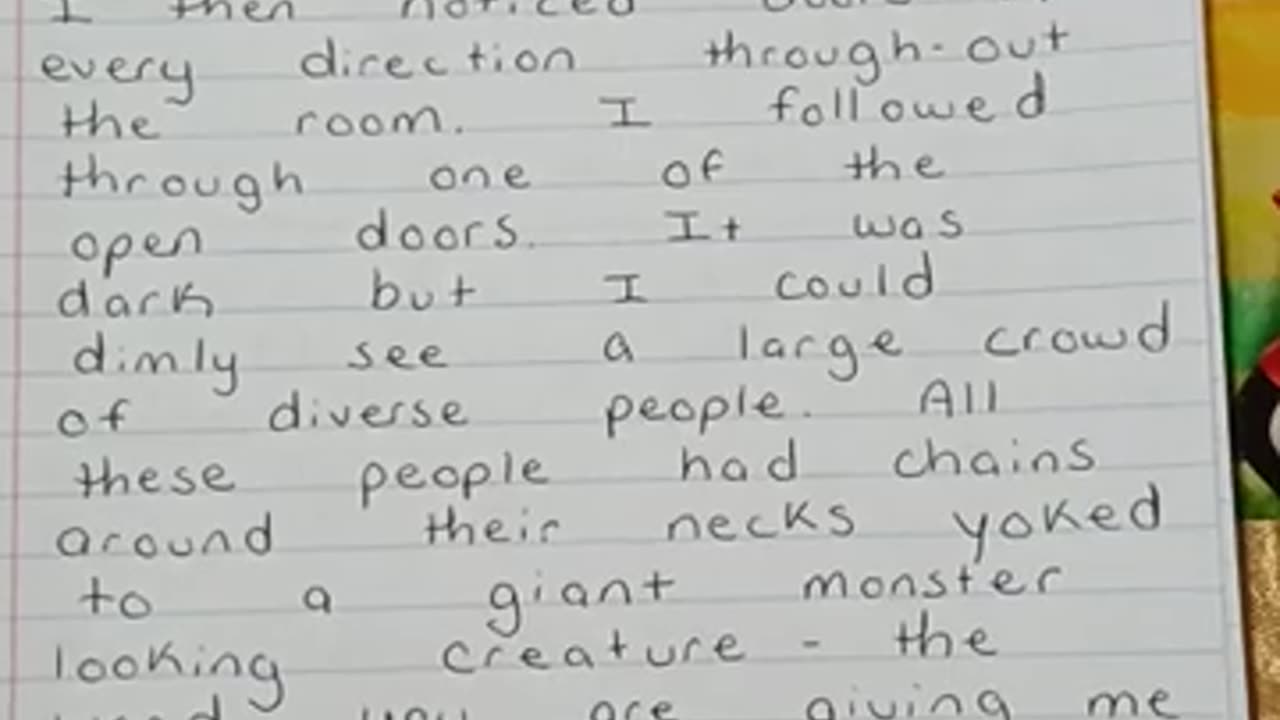 I then noticed doors
every direction through-out
the room. I followed
through one of the
open doors. It was
dark but I could
dimly see a large crowd
of diverse people. All
these people had chains
around their necks yoked
to a giant monster
looking creature - the
you are giving me